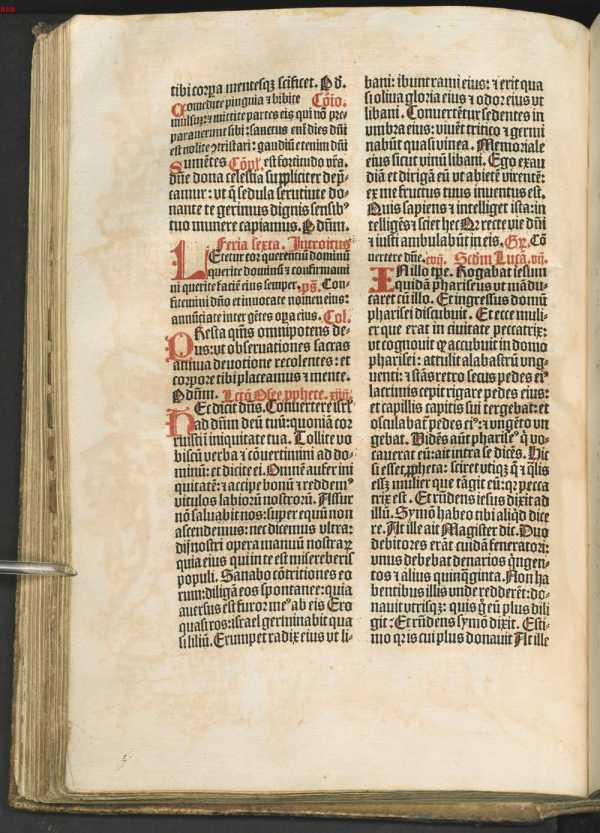 tibi corpͣa mentesqꝫ scificet. P dn̄.
Comedite pinguia ⁊ bibite Cōio.
mulsuꝫ: ⁊ mittite partes eis qui nō pre
parauerunt sibi: sanctus em̄ dies dn̄i
est nolite ꝯtristari: gaudiū etenim dn̄i
Sumētes Cōpl'. est fortitudo vr̄a.
dn̄e dona celestia suppliciter dep̄
camur: vt q̄ sedula seruitute do-
nante te gerimus dignis sensib⁹
tuo munere capiamus. P dn̄um.
Feria sexta. Introitus
LEtetur cor querentiū dominū
querite dominū ⁊ confirmami
ni querite faciē eius semper. ps̄. Con-
fitemini dn̄o et inuocate nomen eius:
annūciate inter gētes oꝑa eius. Col.
PResta qm̄s omnipotens de-
us: vt obseruationes sacras
annua deuotione recolentes: et
corpore tibi placeamus ⁊ mente.
P dn̄um. Lctō Osee ꝓphete. xiiij.
HEc dicit dn̄s. Conuertere isrl'
ad dn̄m deū tuū: quoniā cor
ruisti in iniquitate tua. Tollite vo
biscū verba ⁊ cōuertimini ad do-
minū: et dicite ei. Omnē aufer ini
quitatē: ⁊ accipe bonū ⁊ reddem⁹
vitulos labiorū nostrorū. Assur
nō saluabit nos: super equū non
ascendemus: nec dicemus vltra:
dij nostri opera manuū nostraꝝ
quia eius qui in te est misereberis
populi. Sanabo cōtritiones eo
rum: diligā eos spontanee: quia
auersus est furor me⁹ ab eis Ero
quasi ros: israel germinabit qua
si liliū. Erumpet radix eius vt li-
bani: ibunt rami eius: ⁊ erit qua
si oliua gloria eius ⁊ odor eius vt
libani. Conuertētur sedentes in
vmbra eius: viuēt tritico ⁊ germi
nabūt quasi vinea. Memoriale
eius sicut vinū libani. Ego exau
diā et dirigā eū vt abietē virentē:
ex me fructus tuus inuentus est.
Quis sapiens ⁊ intelliget ista: in
telligēs ⁊ sciet hec Qꝛ recte vie dn̄i
⁊ iusti ambulabūt in eis. Gꝛ. Cō
uertere dn̄e. Scdm̄ Lucā. vij.
IN illo tꝑe. Rogabat iesum
quidā phariseus vt mādu-
caret cū illo. Et ingressus domū
pharisei discubuit. Et ecce muli-
er que erat in ciuitate peccatrix:
vt cognouit ꝙ accubuit in domo
pharisei: attulit alabastrū vng-
uenti: ⁊ stās retro secus pedes ei⁹
lacrimis cepit rigare pedes eius:
et capillis capitis sui tergebat: et
osculabat᷑ pedes ei⁹: ⁊ vngēto vn
gebat. Vidēs aūt pharise⁹ q̇ vo-
cauerat eū: ait intra se dicēs. Hic
si esset ꝓpheta: sciret vtiqꝫ q̄ ⁊ q̄lis
esꝫ mulier que tāgit eū: qꝛ pecca
trix est. Et rn̄dens iesus dixit ad
illū. Symō habeo tibi aliqd dice
re. At ille ait Magister dic. Duo
debitores erāt cuidā feneratori:
vnus debebat denarios qngen-
tos ⁊ alius quinq̄ginta. Non ha
bentibus illis vnde redderēt: do-
nauit vtrisqꝫ: quis g̊ eū plus dili
git: Et rn̄dens symō dixit. Esti-
mo qꝛ is cui plus donauit At ille